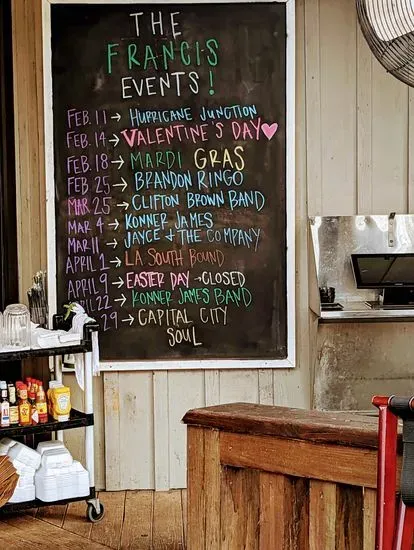 THE
FRANCIS
EVENTS!
FEB. 11 → HURRICANE JUNCTION
FEB. 14 → VALENTINE'S DAY
FEB. 18 → MARDI GRAS
FEB 25 → BRANDON RINGO
MAR 25 → CLIFTON BROWN BAND
MAR 4 → KONNER JAMES
MAR 11 → JAYCE & THE COMPANY
APRIL 1 → LA SOUTH BOUND
APRIL 9 → EASTER DAY → CLOSED
22 → KONNER JAMES BAND
29 → CAPITAL CITY
SOUL